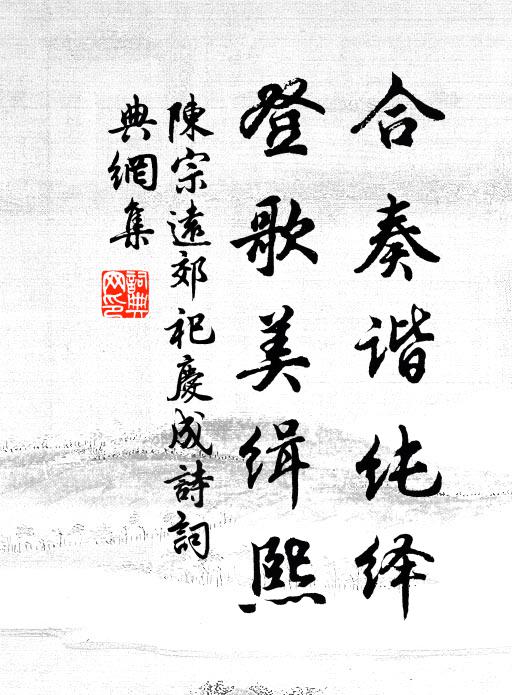 合奏谐纯绎
登歌美缉熙
陳宗遠郊祀慶成詩詞
典網集
詞典
网印